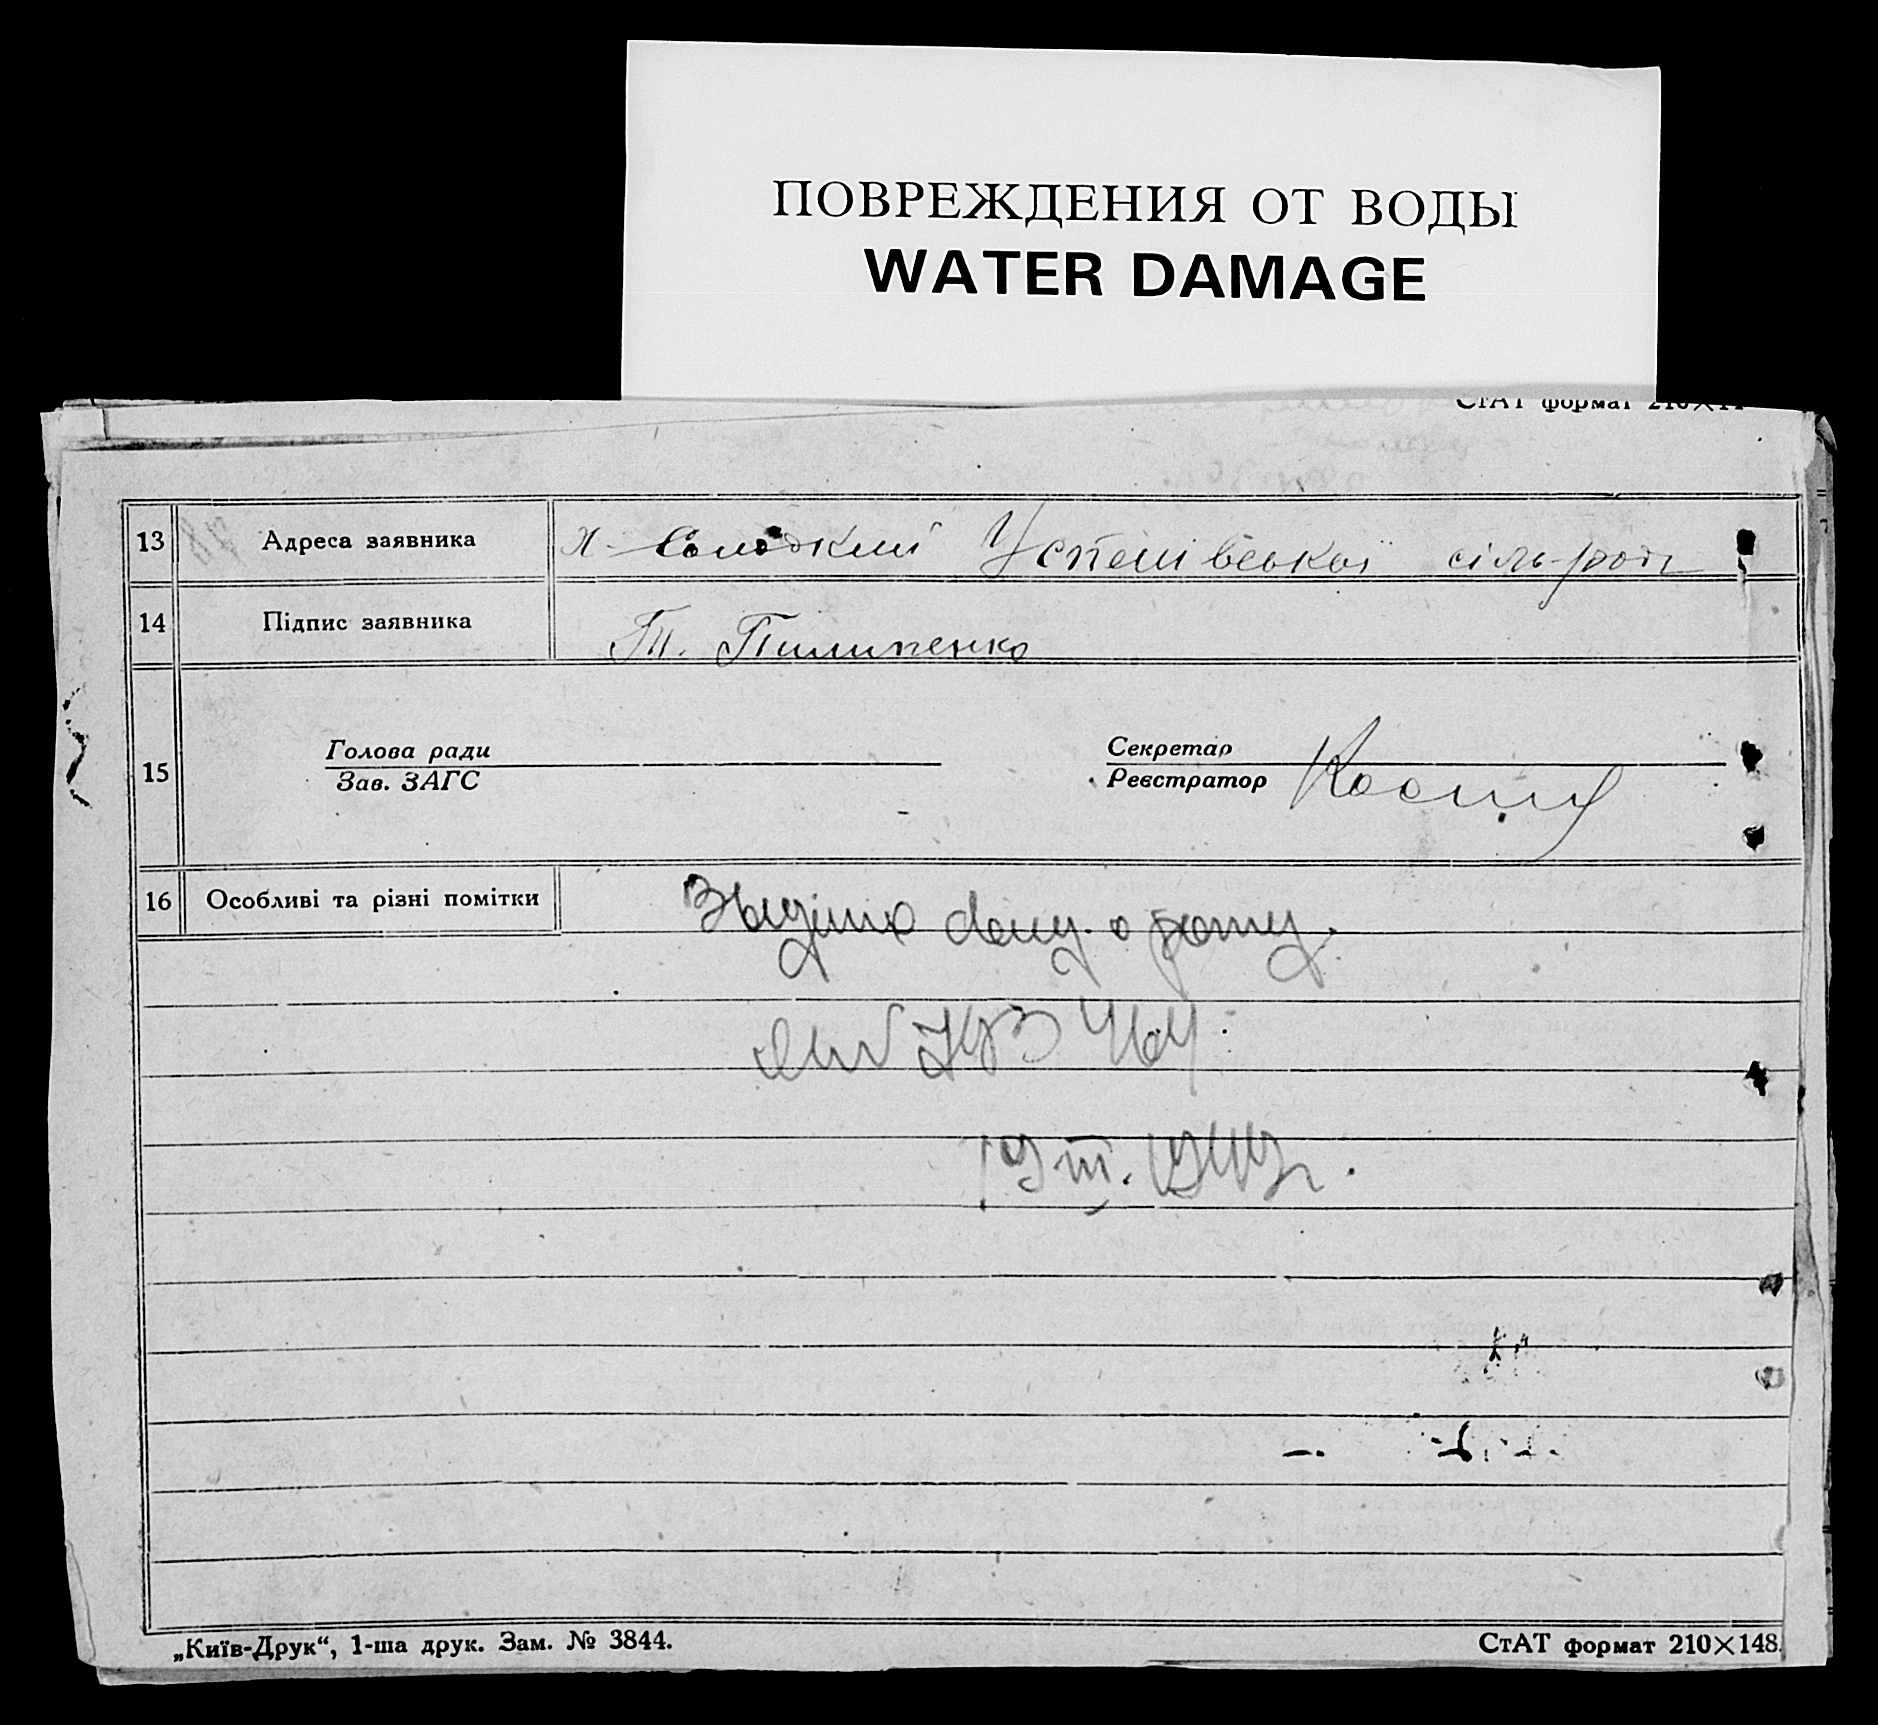 ПОВРЕЖДЕНИЯ ОТ ВОДЫ
WATER DAMAGE
СтАТ формат 210×14
13 Адреса заявника х. Солодкий Успенівської сіль-ради
14 Підпис заявника Т. Пилипенко
15 Голова ради Секретар
Зав. ЗАГС Реєстратор
16 Особливі та різні помітки
19 III.
„Київ-Друк“, 1-ша друк. Зам. № 3844. СтАТ формат 210×148.